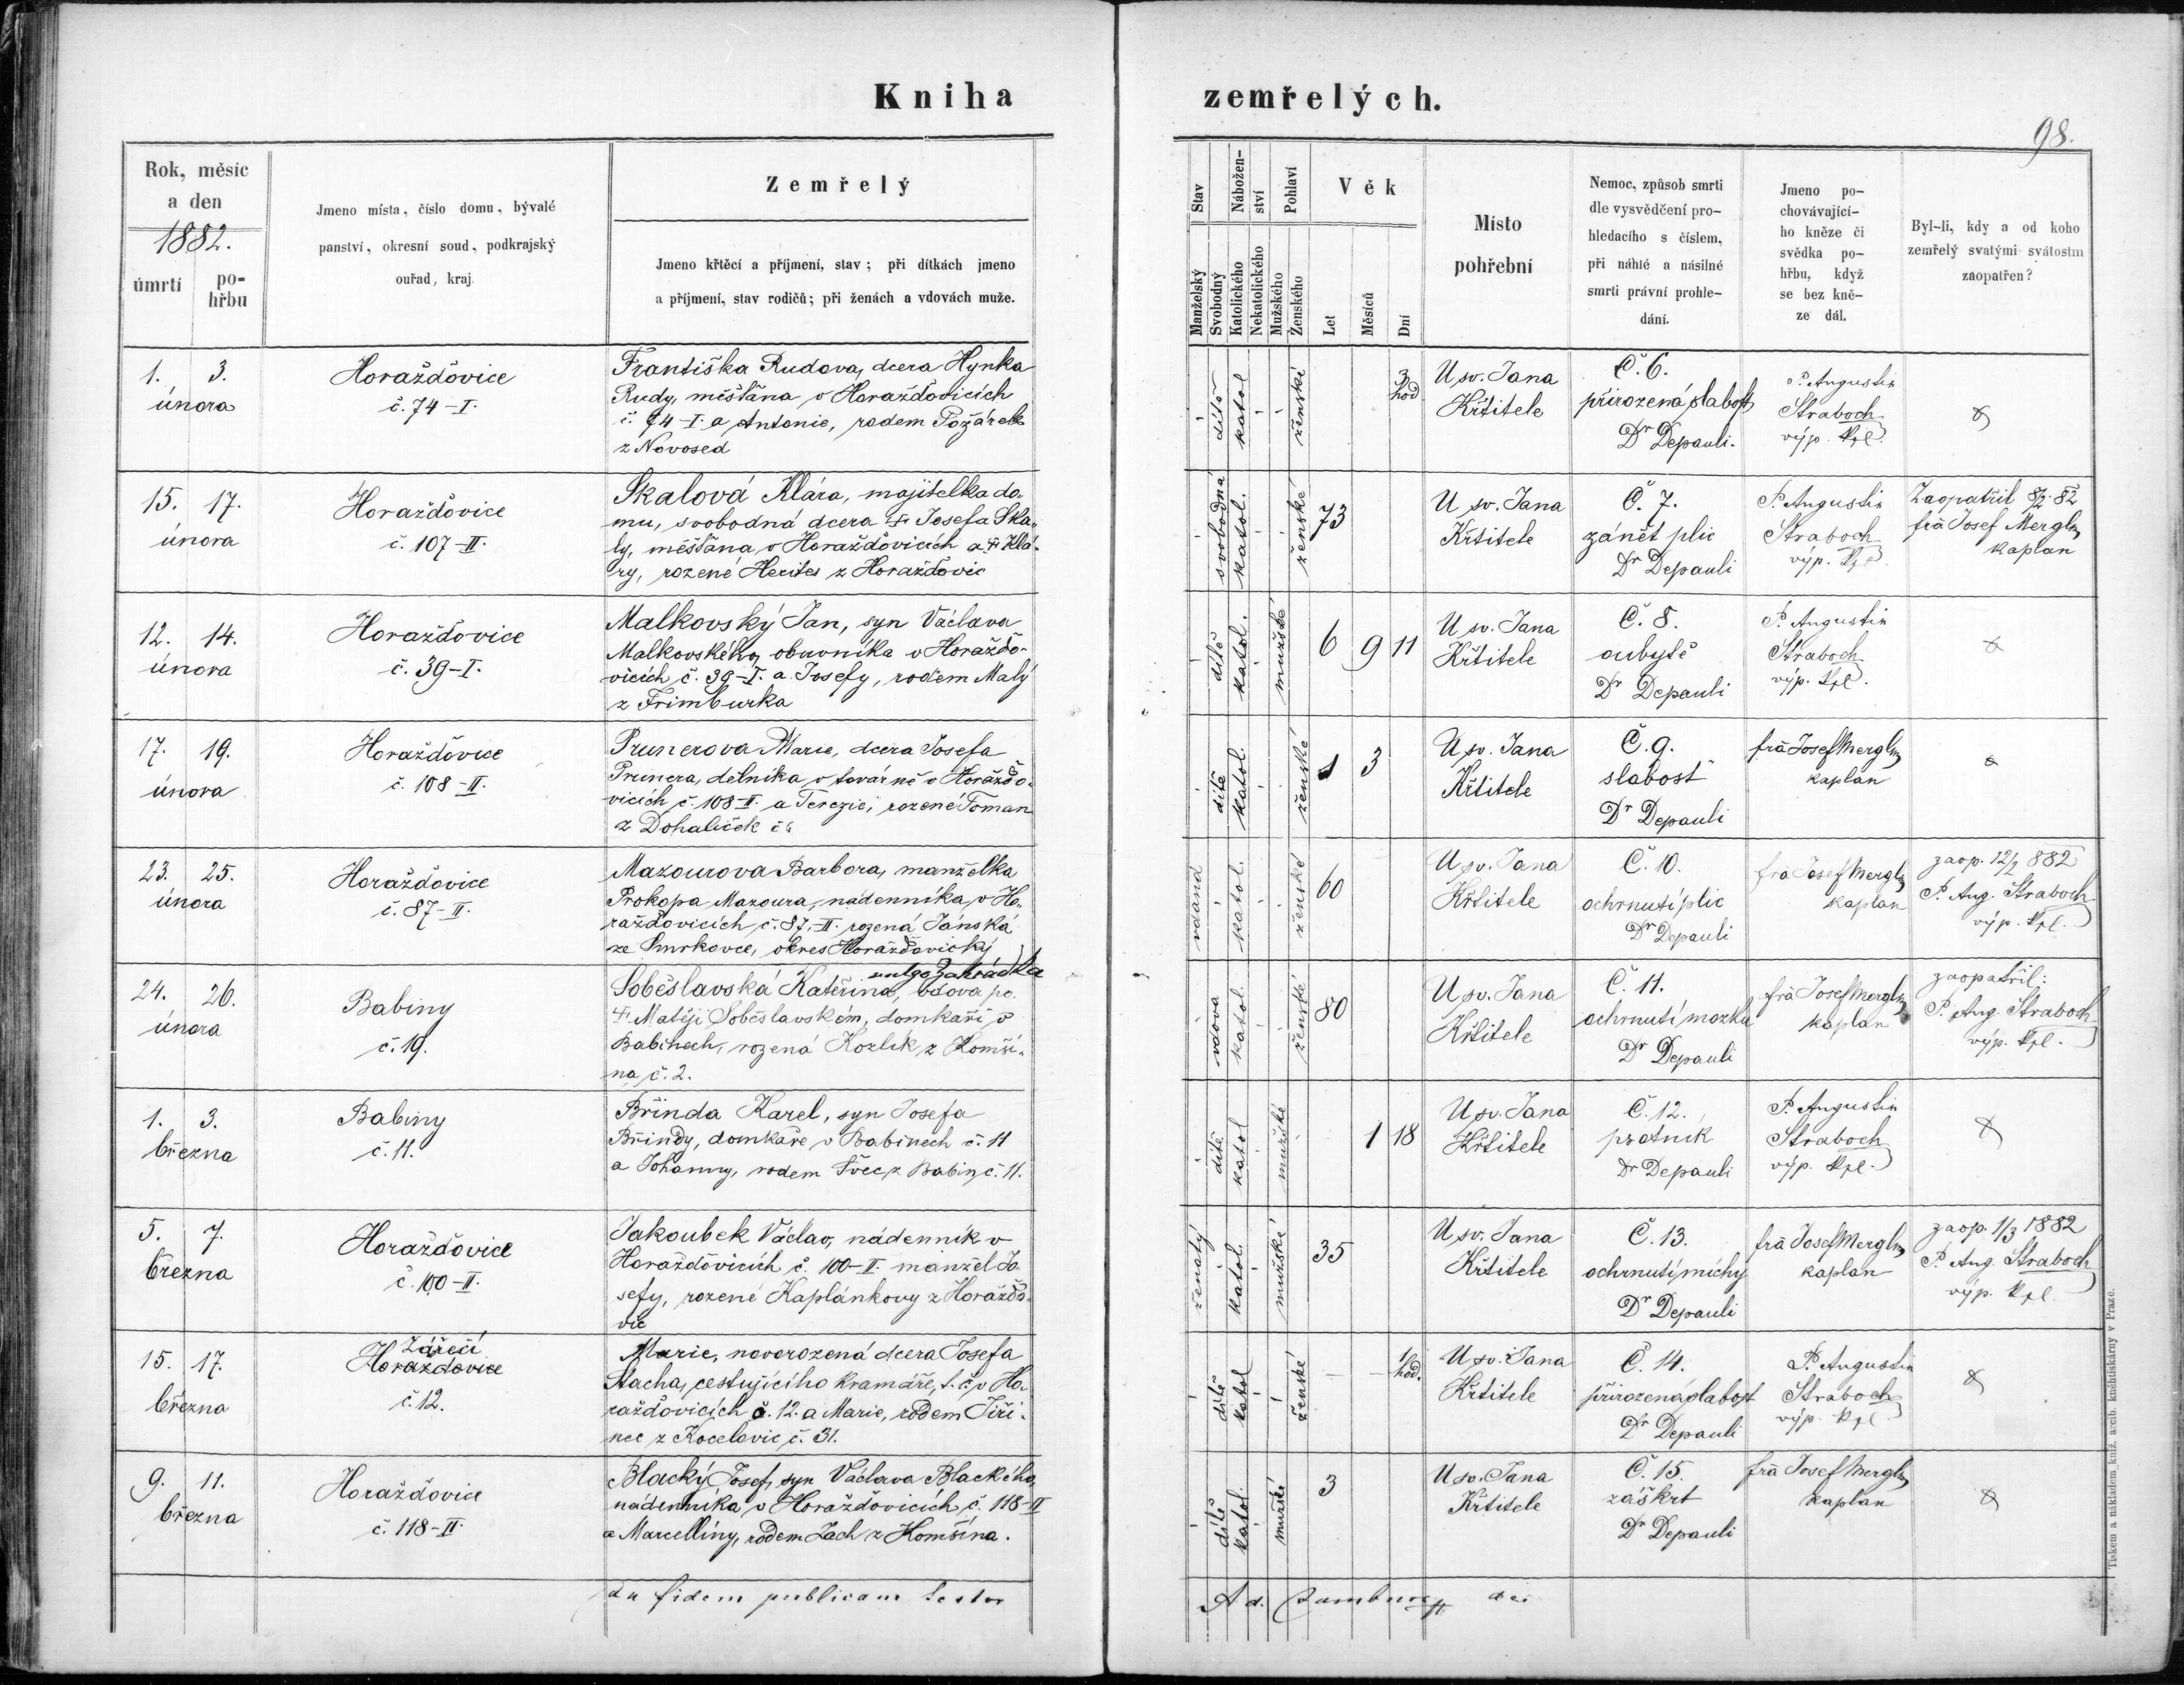 Kniha
zemřelých.
98.
Rok, měsíc
a den
1882.
úmrtí
po-
hřbu
Jmeno místa, číslo domu, bývalé
panství, okresní soud, podkrajský
ouřad, kraj.
Zemřelý
Jmeno křtěcí a příjmení, stav; při dítkách jmeno
a příjmení, stav rodičů; při ženách a vdovách muže.
Stav
Manželský
Svobodný
Nábožen-
ství
Katolického
Nekatolického
Pohlaví
Mužského
Ženského
Věk
Let
Měsíců
Dní
Místo
pohřební
Nemoc, způsob smrti
dle vysvědčení pro-
hledacího s číslem,
při náhlé a násilné
smrti právní prohle-
dání.
Jmeno po-
chovávající-
ho kněze či
svědka po-
hřbu, když
se bez kně-
ze dál.
Byl-li, kdy a od koho
zemřelý svatými svátostm
zaopatřen?
1. 3.
února
Horažďovice
č. 74-I.
Františka Rudova, dcera Hynka
Rudy, měšťana v Horažďovicích
č. 74-I. a Antonie, rodem Požárek
z Novosed
dítě
katol
ženské
3 hod
U sv. Jana
Křtitele
Č. 6.
přirozená slabost
Dr Depauli.
P. Augustin
Straboch
výp. kpl.
15. 17.
února
Horažďovice
č. 107-II.
Skalová Klára, majitelka do-
mu, svobodná dcera † Josefa Ska-
ly, měšťana v Horažďovicích a † Klá-
ry, rozené Herites z Horažďovic
svobodná
katol.
ženské
73
U sv. Jana
Křtitele
Č. 7.
zánět plic
Dr Depauli
P. Augustin
Straboch
výp. kpl.
Zaopatřil 8/2 82
frà Josef Mergl
kaplan
12. 14.
února
Horažďovice
č. 39-I.
Malkovský Jan, syn Václava
Malkovského, obuvníka v Horažďo-
vicích č. 39-I. a Josefy, rodem Malý
z Frimburka
dítě
katol.
mužské
6 9 11
U sv. Jana
Křtitele
Č. 8.
oubytě
Dr Depauli
P. Augustin
Straboch
výp. kpl.
17. 19.
února
Horažďovice
č. 108-II.
Prunerova Marie, dcera Josefa
Prunera, dělníka v továrně v Horažďo-
vicích č. 108-II. a Terezie, rozené Toman
z Dohaliček č 6
dítě
katol.
ženské
1 3
U sv. Jana
Křtitele
Č. 9.
slabost
Dr Depauli
frà Josef Mergl
kaplan
23. 25.
února
Horažďovice
č. 87-II.
Mazourova Barbora, manželka
Prokopa Mazoura, nádenníka v Ho-
ražďovicích č. 87.-II. rozená Jánská
ze Smrkovce, okres Horažďovický
katol.
ženské
60
U sv. Jana
Křtitele
Č. 10.
ochrnutí plic
Dr Depauli
frà Josef Mergl
kaplan
zaop. 12/2 882
P. Aug. Straboch
výp. kpl.
24. 26.
února
Babiny
č. 19.
vulgo Zahrádka
Soběslavská Kateřina, vdova po
† Matěji Soběslavském, domkaři v
Babinech, rozená Kozlík z Komší-
na č. 2.
vdova
katol.
ženské
80
U sv. Jana
Křtitele
Č. 11.
ochrnutí mozku
Dr Depauli
frà Josef Mergl
kaplan
zaopatřil:
P. Aug. Straboch
výp. kpl.
1. 3.
března
Babiny
č. 11.
Břinda Karel, syn Josefa
Břindy, domkáře v Babinech č. 11
a Johanny, rodem Švec z Babin č. 11.
dítě
katol
mužské
1 18
U sv. Jana
Křtitele
Č. 12.
psotník
Dr Depauli
P. Augustin
Straboch
výp. kpl.
5. 7.
března
Horažďovice
č. 100-II.
Jakoubek Václav, nádenník v
Horažďovicích č. 100-II. manžel Jo-
sefy, rozené Kaplánkovy z Horažďo-
vic
ženatý
katol.
mužské
35
U sv. Jana
Křtitele
Č. 13.
ochrnutí míchy
Dr Depauli
frà Josef Mergl
kaplan
zaop. 1/3 1882
P. Aug. Straboch
výp. kpl.
15. 17.
března
Zářečí
Horažďovice
č. 12.
Marie, novorozená dcera Josefa
Stacha, cestujícího kramáře, t. č. v Ho-
ražďovicích č. 12. a Marie, rodem Jiří-
nec z Kocelovic č. 31.
dítě
katol
ženské
1 hod.
U sv. Jana
Křtitele
Č. 14.
přirozená slabost
Dr Depauli
P. Augustin
Straboch
výp. kpl
9. 11.
března
Horažďovice
č. 118-II.
Blacký Josef, syn Václava Blackého,
nádenníka v Horažďovicích č. 118-II
a Marcelliny, rodem Zach z Komšína.
dítě
katol.
mužské
3
U sv. Jana
Křtitele
Č. 15.
záškrt
Dr Depauli
frà Josef Mergl
kaplan
fidem publicam testor
Tiskem a nákladem kníž. arcib. kněhtiskárny v Praze.